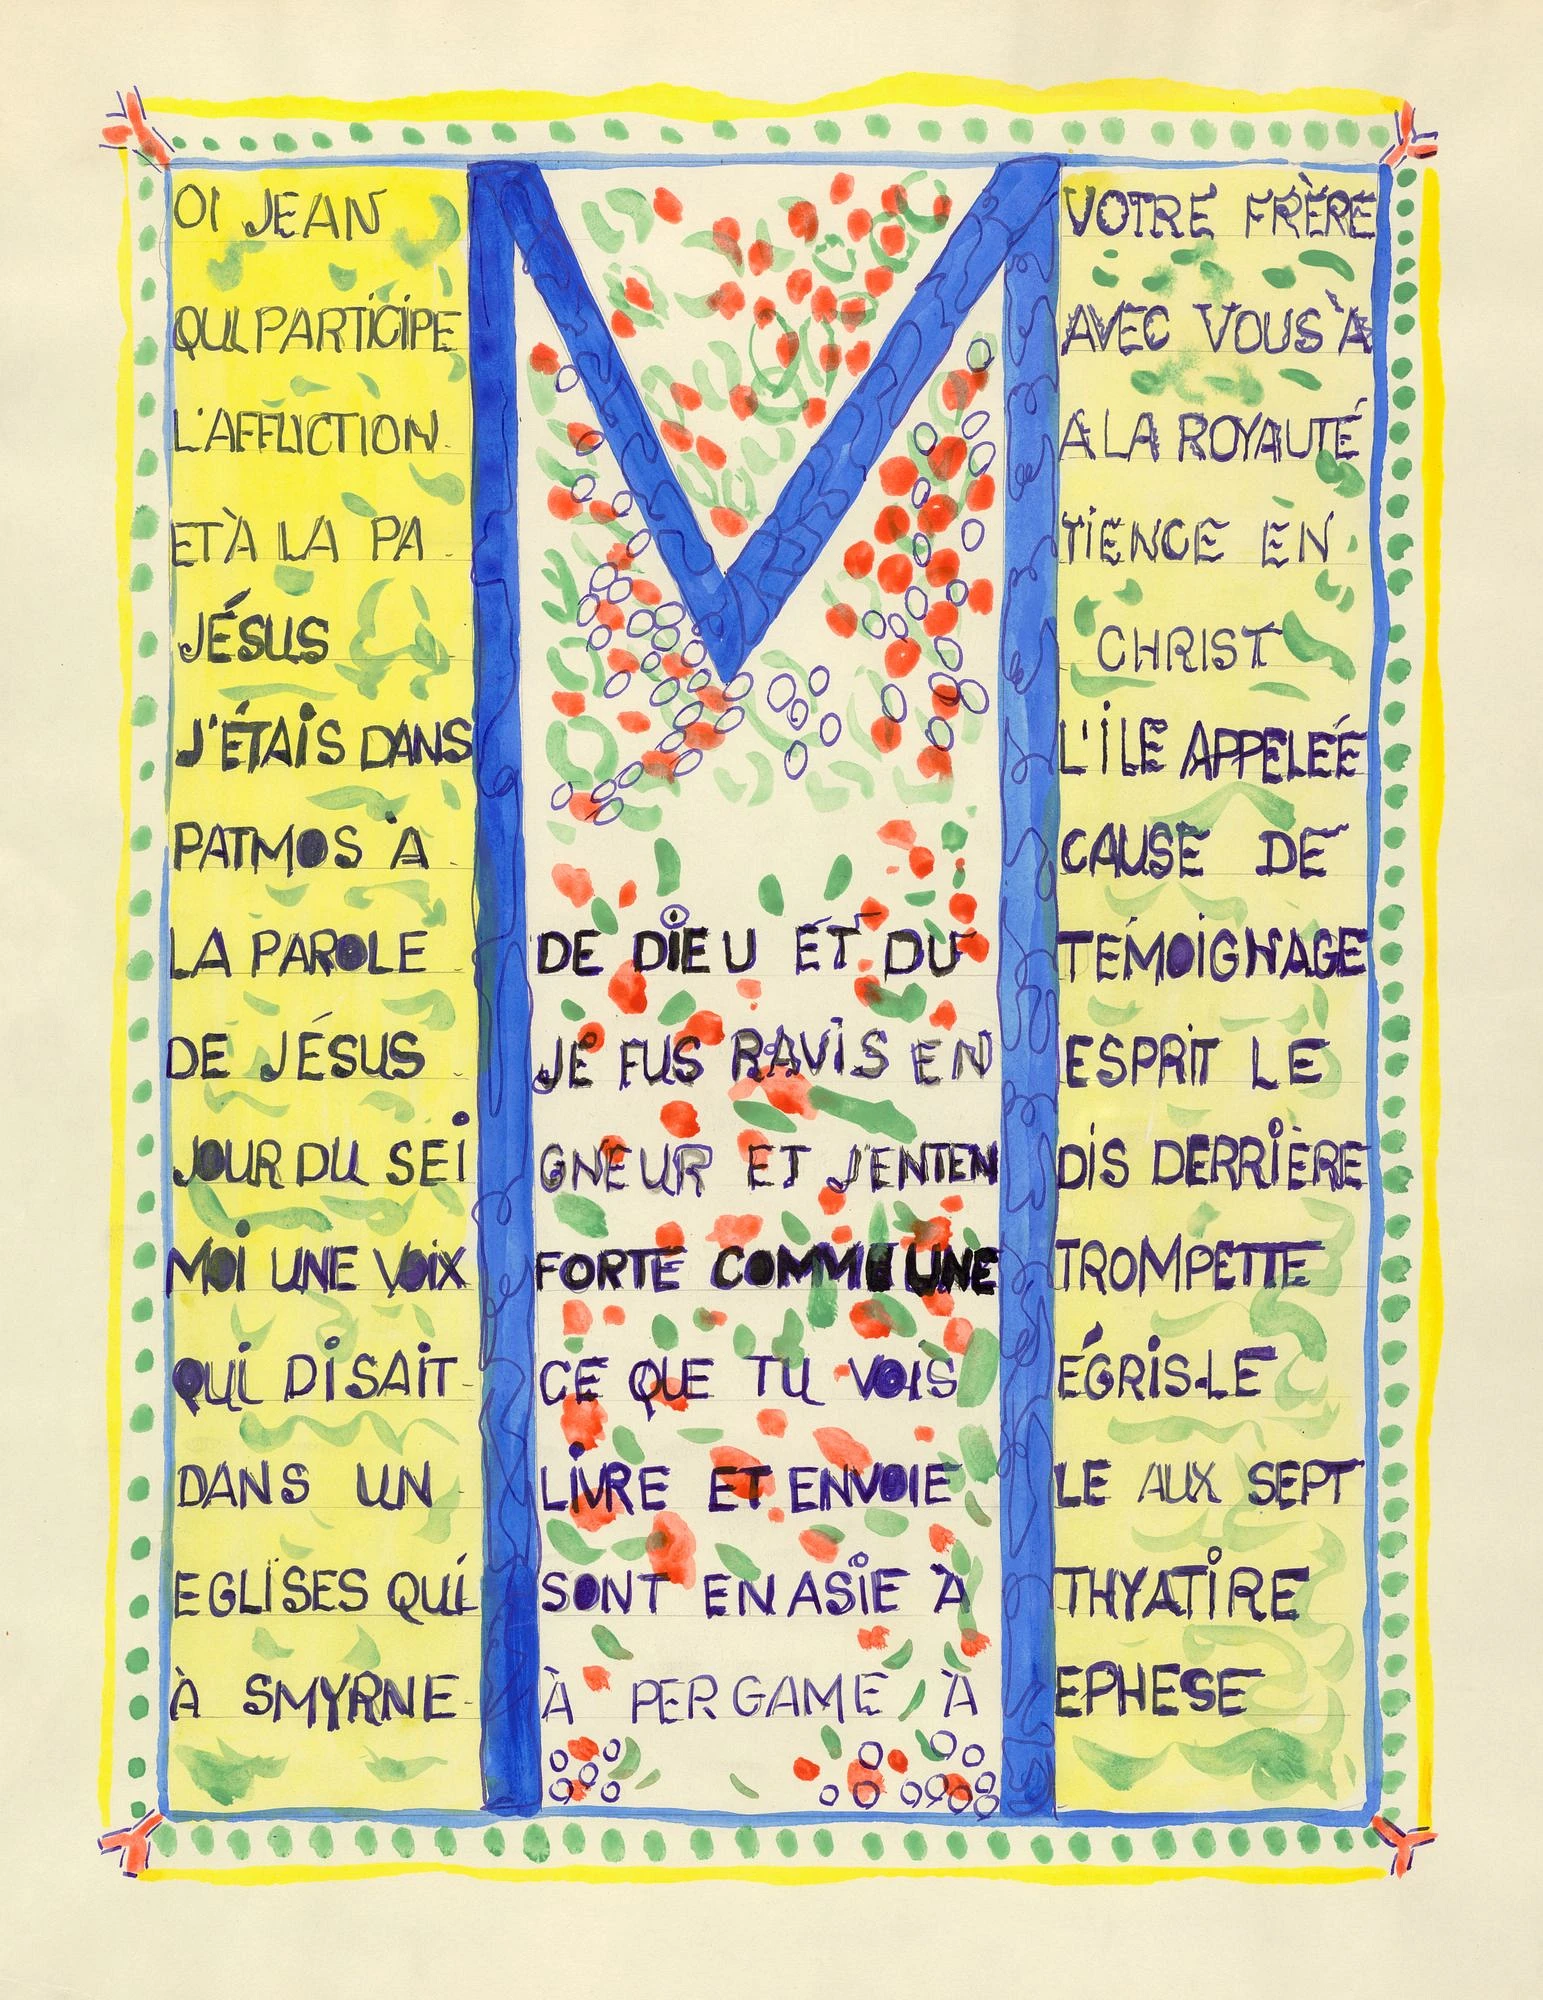 M
OI JEAN VOTRE FRÈRE
QUI PARTICIPE AVEC VOUS À
L'AFFLICTION A LA ROYAUTÉ
ET À LA PA TIENCE EN
JÉSUS CHRIST
J'ÉTAIS DANS L'ILE APPELEÉ
PATMOS À CAUSE DE
LA PAROLE DE DIEU ET DU TEMOIGNAGE
DE JÉSUS JE FUS RAVIS EN ESPRIT LE
JOUR DU SEI GNEUR ET J'ENTEN DIS DERRIÈRE
MOI UNE VOIX FORTE COMME UNE TROMPETTE
QUI DISAIT CE QUE TU VOIS ÉGRIS-LE
DANS UN LIVRE ET ENVOIE LE AUX SEPT
EGLISES QUI SONT EN ASIE À THYATIRE
À SMYRNE À PERGAME À EPHESE